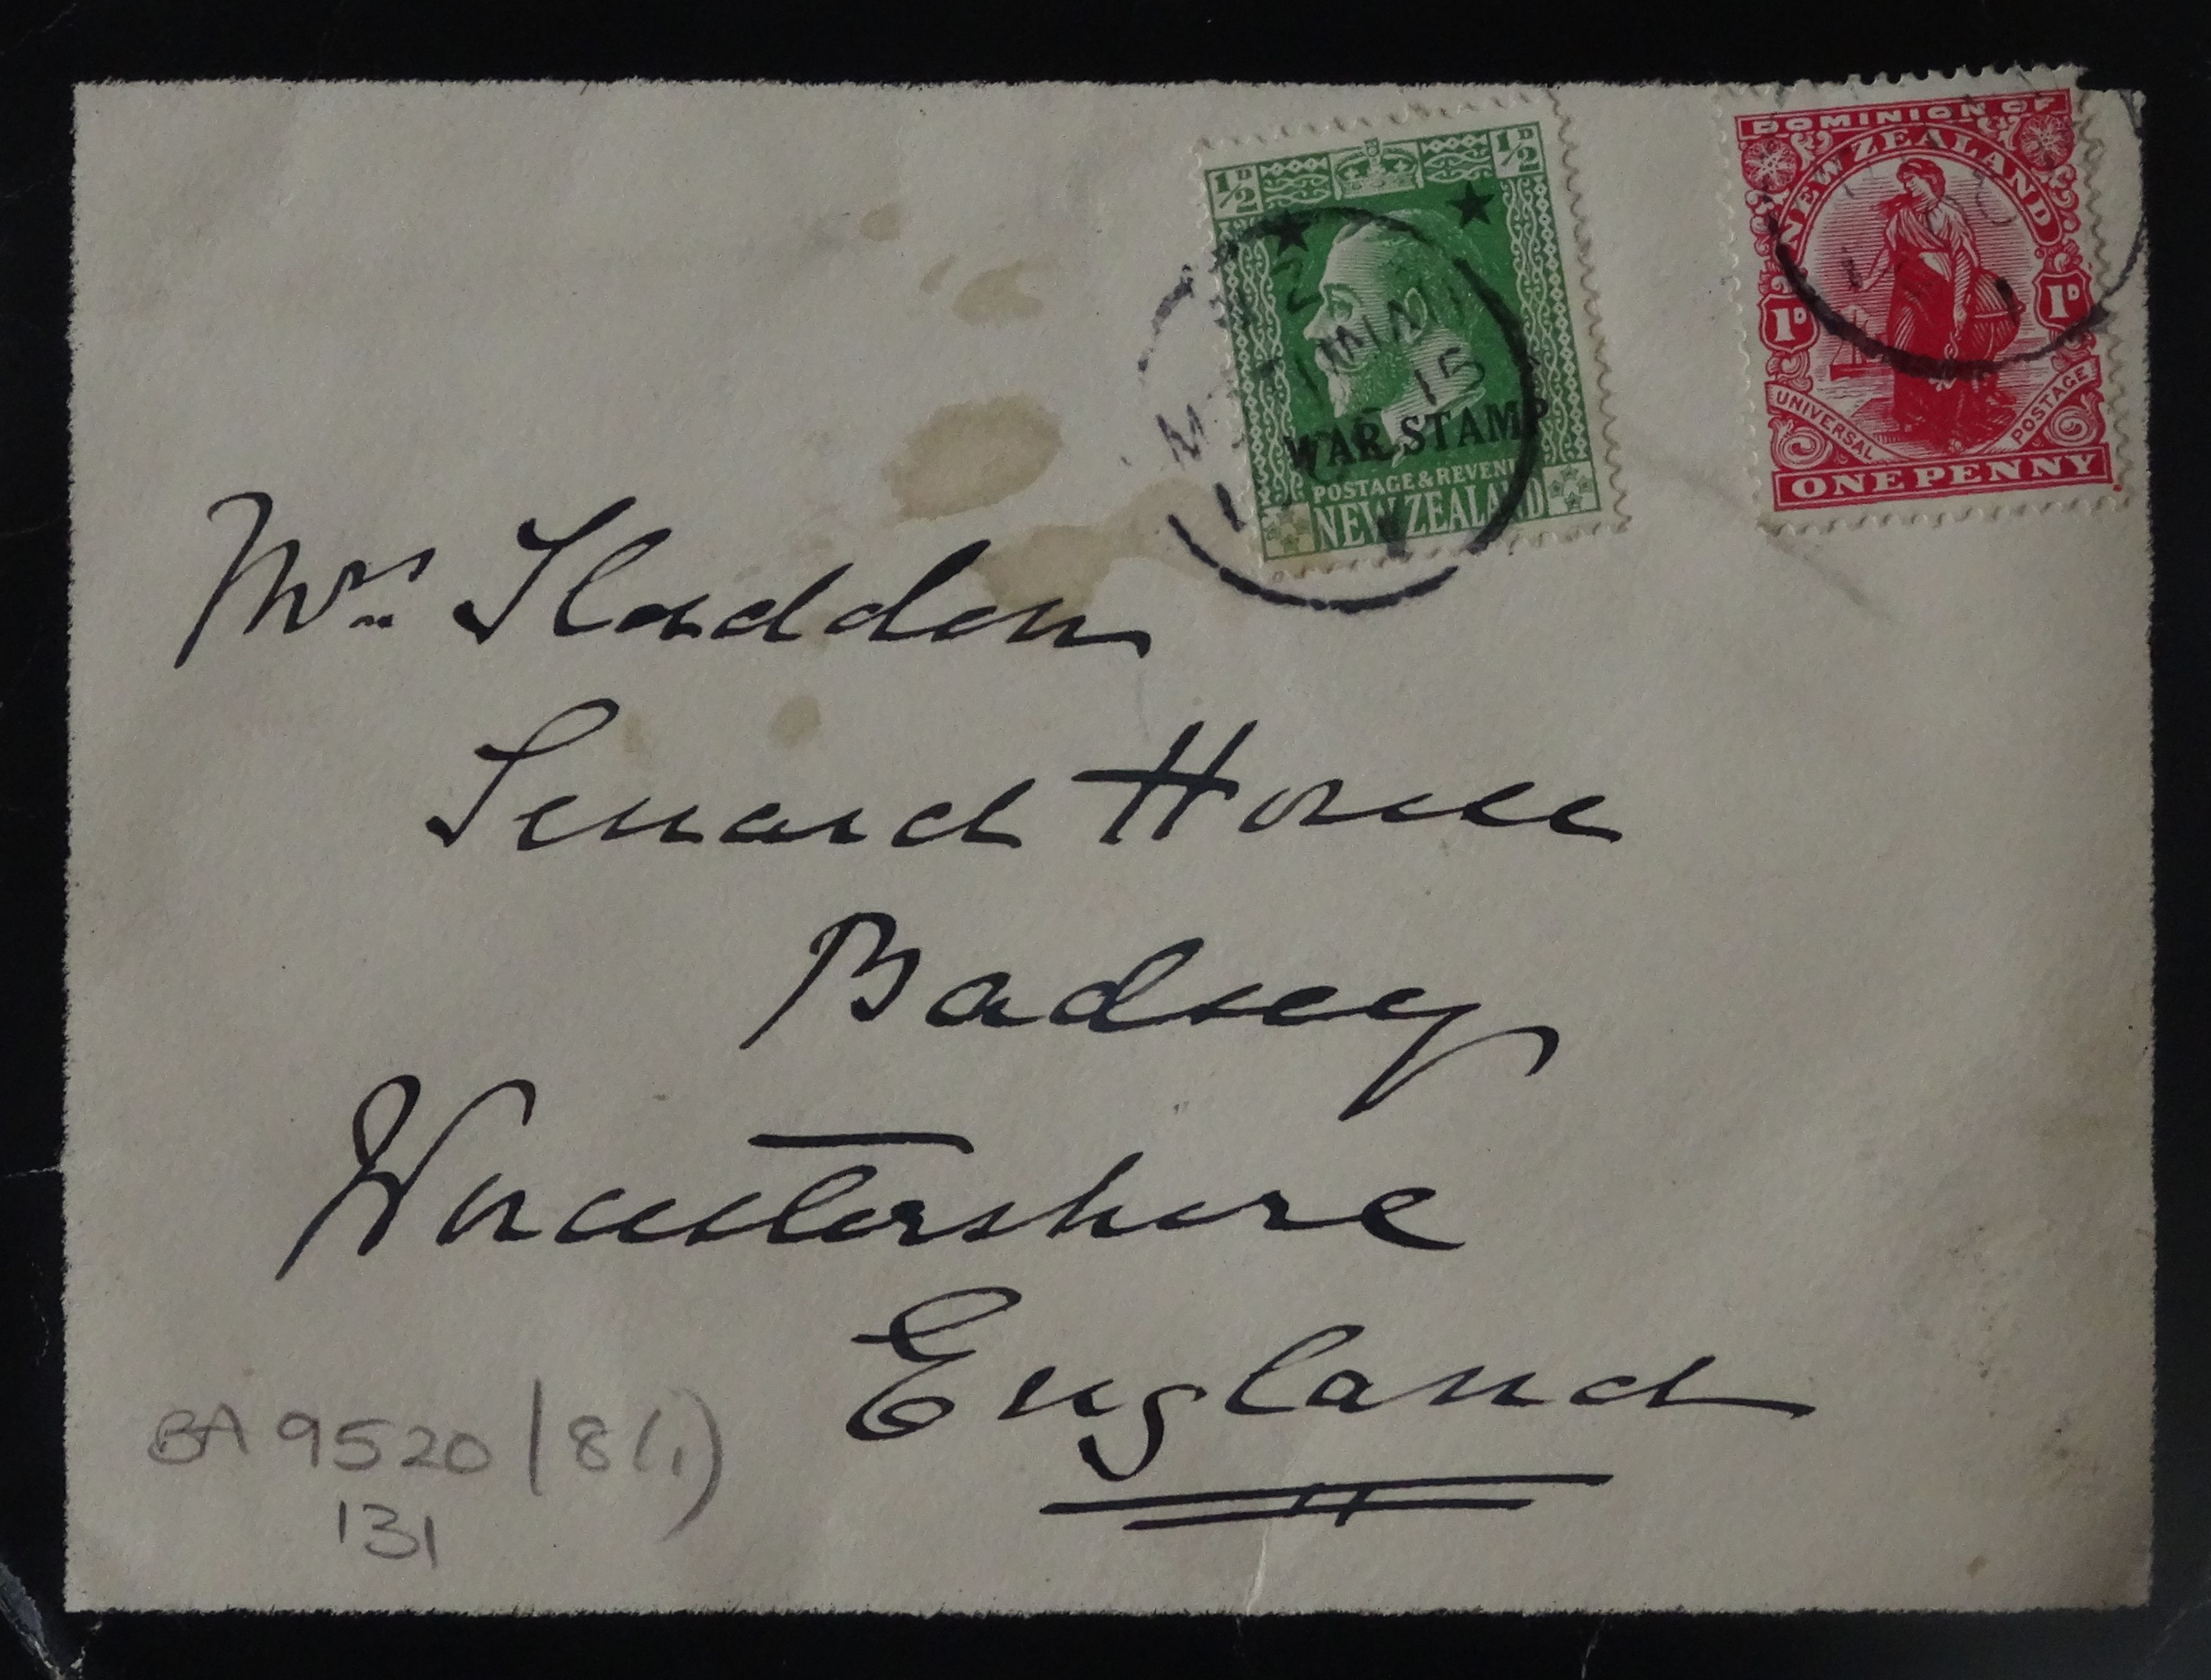 ½D ½D
WAR STAMP
POSTAGE & REVENUE
NEW ZEALAND
15
DOMINION OF
NEW ZEALAND
1D 1D
UNIVERSAL POSTAGE
ONE PENNY
Mrs Sladden
Seward House
Badsey
Worcestershire
England
BA 9520/8(1)
131